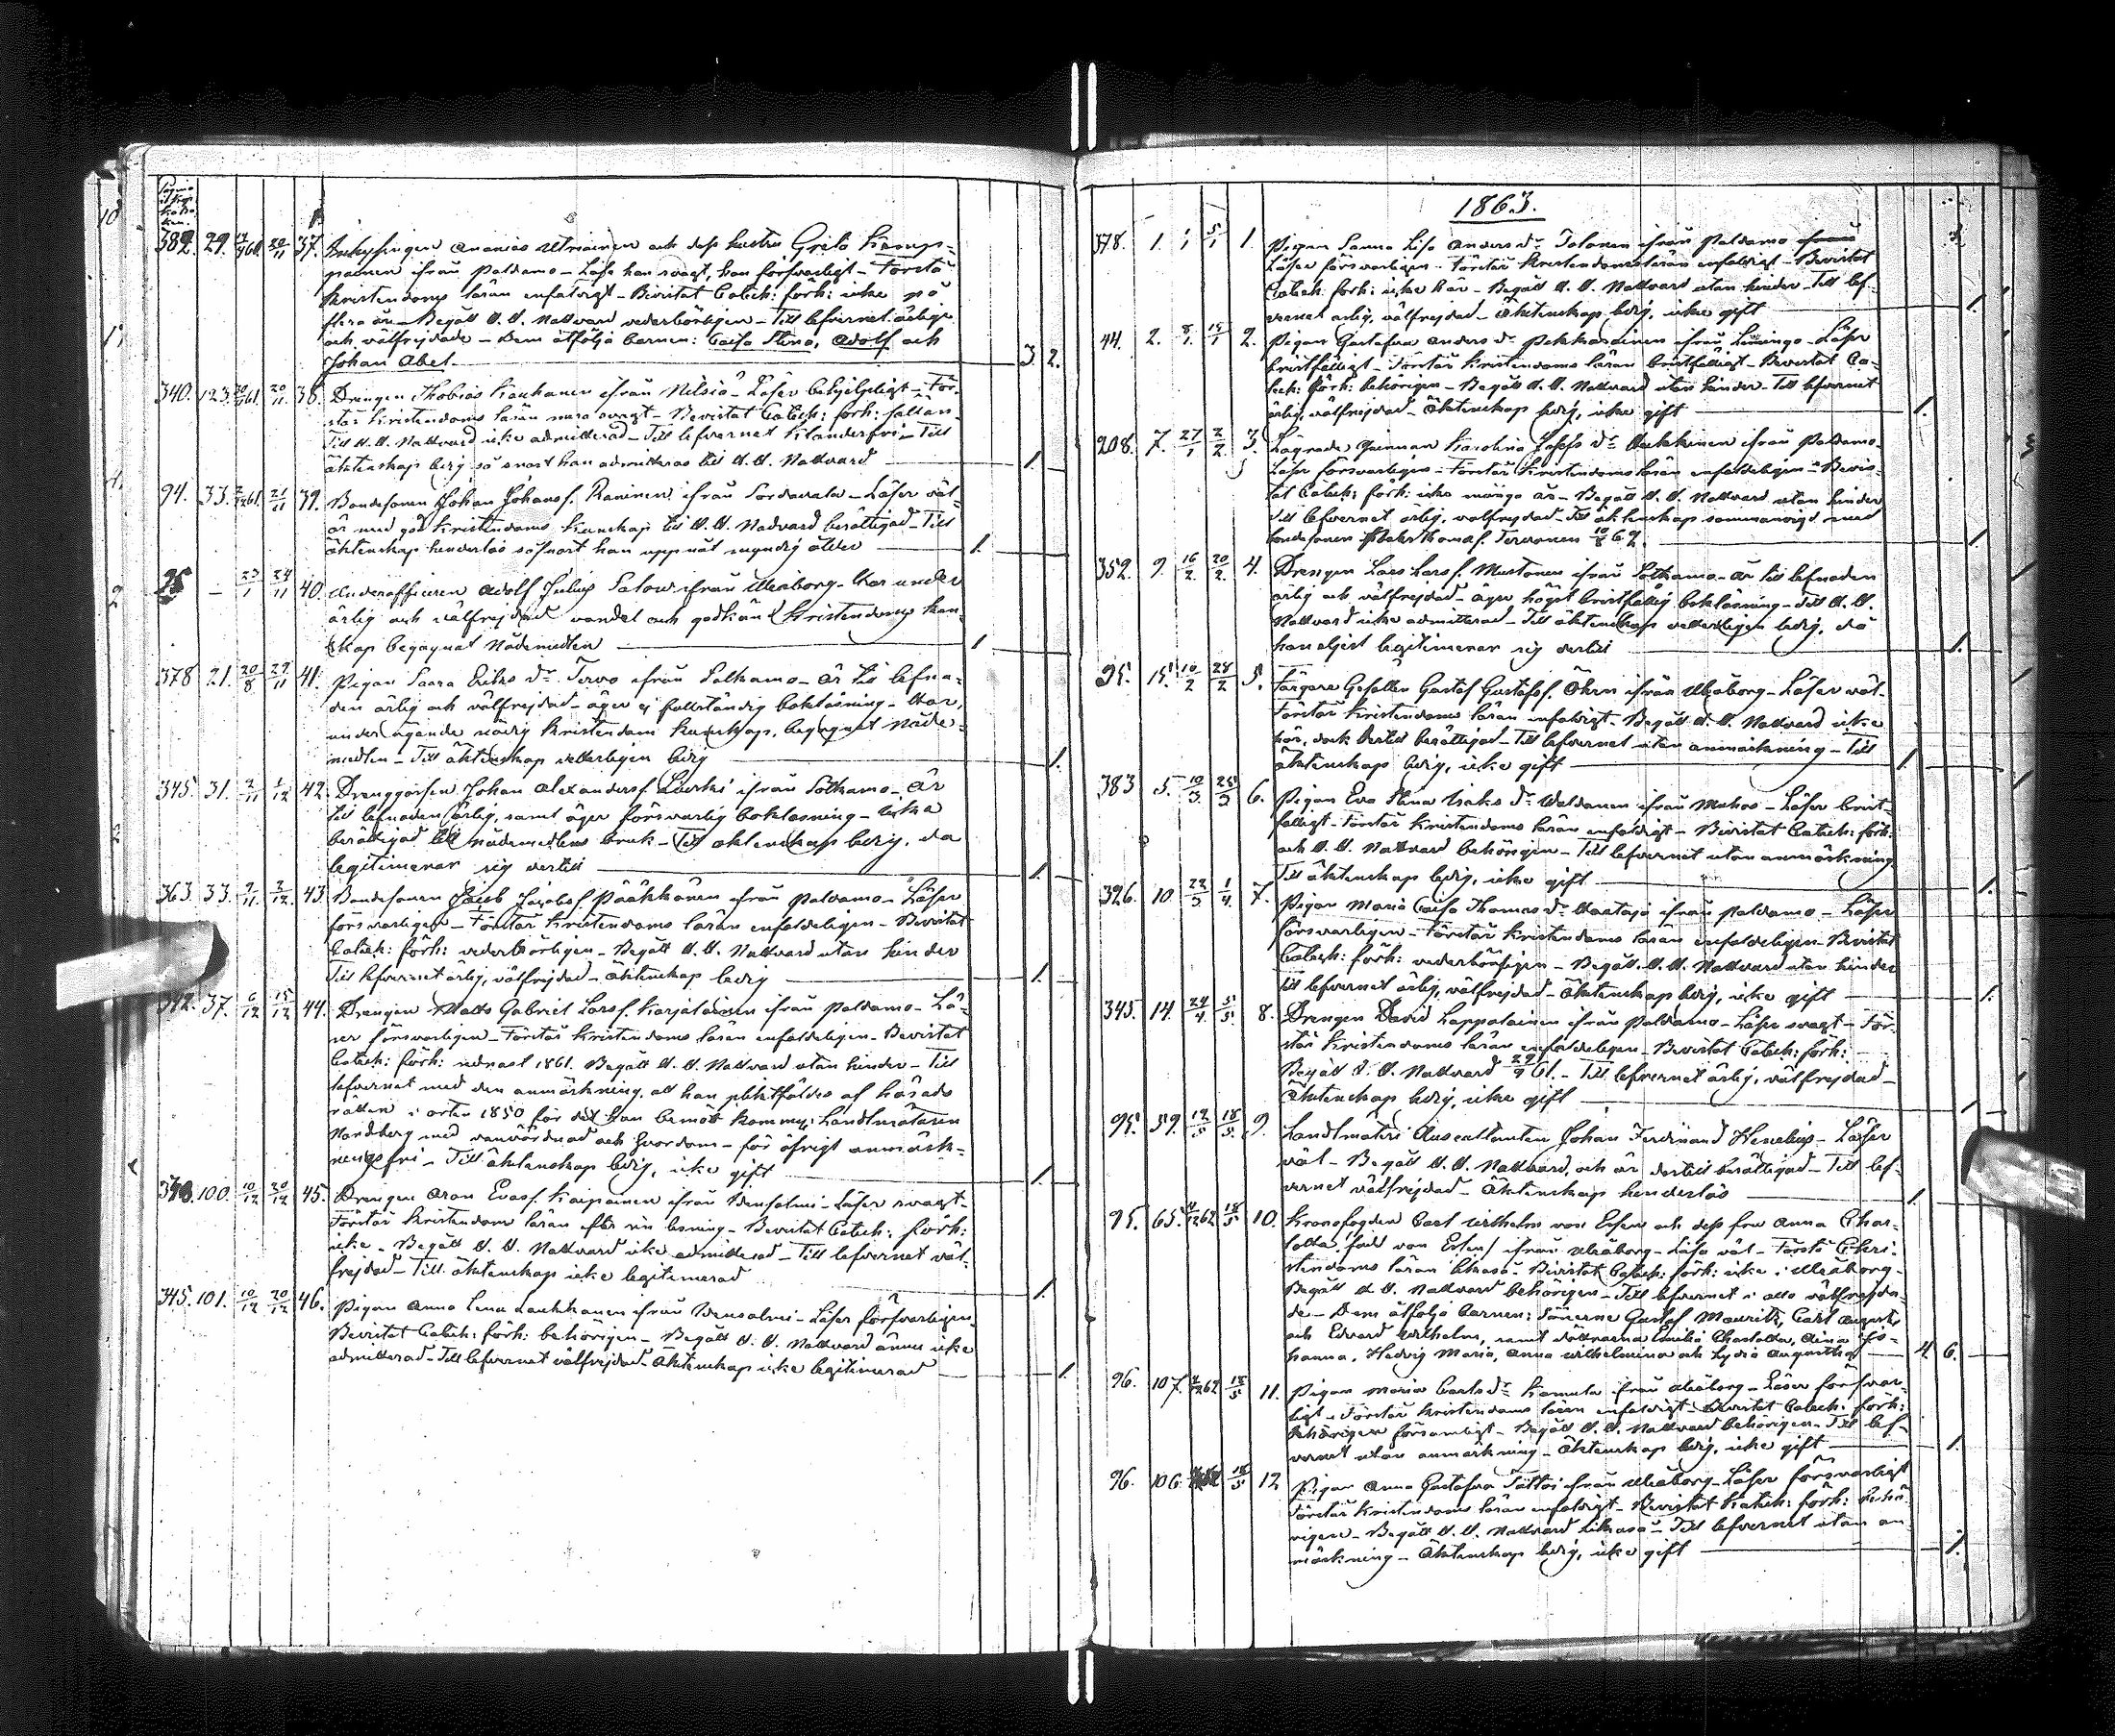 389. 29. 20/11 37. Inhysingen Ananias Utriainen och dess hustru Greta Kamp-
painen ifrån Paldamo – Läser han svagt, hon försvarligt – Förstå
Kristendoms läran enfaldigt – Bevistat Catech: förh: icke på
flera år – Begått H. H. Nattvard vederbörligen – Till lefvernet ärliga
och välfrejdade – Dem åtfölja barnen: Caisa Stina, Adolf och
Johan Abel. 3. 2.
340. 123. 61. 20/11 38. Drengen Thobias Kauhanen ifrån Nilsiä – Läser behjelpligt – För-
står Kristendoms läran mera svagt – Bevistat Catech: förh: sällan –
Till H. H. Nattvard icke admitterad – Till lefvernet klanderfri – Till
äktenskap ledig så snart han admitteras till H. H. Nattvard 1.
94. 33. 61. 21/11 39. Bondesonen Johan Johans f. Raninen ifrån Sordavala – Läser väl –
är med god Kristendoms kunskap till H. H. Nadvard berättigad – Till
äktenskap hinderlös såsnart han uppnåt myndig ålder 1.
25 – 23/1 24/11 40. Underofficeren Adolf Julius Salow ifrån Uleåborg – Har under
ärlig och välfrejdad vandel och godkänd Kristendoms kun-
skap begagnat Nådemedlen 1
378 21. 20/8 29/11 41. Pigan Saara Eriks dr Tervo ifrån Sotkamo – Är till lefna-
den ärlig och välfrejdad – äger ej fullständig bokläsning – Har,
under ägande nödig Kristendoms kunskap, begagnat Nåde-
medlen – Till äktenskap vetterligen ledig 1.
345. 31. 2/11 1/12 42. Drenggossen Johan Alexandersf. ifrån Sotkamo – Är
till lefnaden ärlig, samt äger försvarlig bokläsning – icke
berättigad till nådemedlens bruk – Till äktenskap ledig, då
legitimerar sig dertill 1.
363. 33. 9/11 2/12 43. Bondesonen Jacob Jacobs f. Pääkkönen ifrån Paldamo – Läser
försvarligen – Förstår Kristendoms läran enfaldeligen – Bevistat
Catech: förh: vederbörligen – Begått H. H. Nattvard utan hinder
Till lefvernet ärlig, välfrejdad – äktenskap ledig 1.
342. 37. 6/12 15/12 44. Drengen Mats Gabriel Lars f. Karjalainen ifrån Paldamo – Lä-
ser försvarligen – Förstår Kristendoms läran enfaldeligen – Bevistat
Catech: förh: sednast 1861. Begått H. H. Nattvard utan hinder – Till
lefvernet med den anmärkning, att han pliktfäldes af härads
rätten i orten 1850 för det han bemött kommiss: Landtmätaren
Nordberg med vanvördnad och Svordom – för öfrigt anmärk-
ningsfri – Till äktenskap ledig, icke gift 1.
100. 10/12 20/12 45. Drengen Aron Evas f. Kaipainen ifrån Idensalmi – Läser svagt –
Förstår Kristendoms läran efter sin läsning – Bevistat Catech: förh:
icke – Begått H. H. Nattvard icke admitterad – Till lefvernet väl-
frejdad – Till äktenskap icke legitimerad 1.
345. 101. 10/12 20/12 46. Pigan Anna Lena Laukkanen ifrån Idensalmi – Läser försvarligen
Bevistat Catech: förh: behörigen – Begått H. H. Nattvard ännu icke
admitterad – Till lefvernet välfrejdad – Äktenskap icke legitimerad 1.
1863.
378. 1. 1/1 5/1 1. Pigan Sanna Lisa Anders dr Tolonen ifrån Paldamo
Läser försvarligen – Förstår Kristendoms läran enfaldigt – Bevistat
Catech: förh: icke här – Begått H. H. Nattvard utan hinder – Till lef-
vernet ärlig, välfrejdad – Äktenskap ledig, icke gift 1.
44. 2. 8/1 15/1 2. Pigan Gustafva Anders dr Pekkarainen ifrån Limingo – Läser
bristfälligt – Förstår Kristendoms läran bristfälligt – Bevistat Ca-
tech: förh: behörigen – Begått H. H. Nattvard utan hinder – Till lefvernet
ärlig, välfrejdad – Äktenskap ledig, icke gift 1.
208. 7. 27/1 2/2 3. Lägrade qvinnan Karolina Josefs dr ifrån Paldamo –
Läser försvarligen – Förstår Kristendoms läran enfaldeligen – Bevis-
tat Catech: förh: icke många år – Begått H. H. Nattvard utan hinder
Till lefvernet ärlig, välfrejdad – Till äktenskap sammanvigd med
bondesonen Thomas f. Tervonen 10/8 62. 1.
352. 9. 16/2 20/2 4. Drengen Lars Lars f. Mustonen ifrån Sotkamo – Är till lefnaden
ärlig och välfrejdad – äger högst bristfällig bokläsning – Till H. H.
Nattvard icke admitterad – Till äktenskap vetterligen ledig, då
han eljest legitimerar sig dertill 1.
95. 15. 10/2 28/2 5. Färgare Gesällen Gustaf Gustafs f. Öhrn ifrån Uleåborg – Läser väl –
Förstår Kristendoms läran enfaldigt – Begått H. H. Nattvard icke
här, dock dertill berättigad – Till lefvernet utan anmärkning – Till
äktenskap ledig, icke gift 1.
383 5. 10/3 25/3 6. Pigan Eva Stina Isaks dr ifrån Muhos – Läser brist-
fälligt – Förstår Kristendoms läran enfaldigt – Bevistat Catech: förh:
och H. H. Nattvard behörigen – Till lefvernet utan anmärkning
Till äktenskap ledig, icke gift 1.
326. 10. 23/3 1/4 7. Pigan Maria Caisa Thomas dr ifrån Paldamo – Läser
försvarligen – Förstår Kristendoms läran enfaldeligen – Bevistat
Catech: förh: vederbörligen – Begått H. H. Nattvard utan hinder
till lefvernet ärlig, välfrejdad – Äktenskap ledig, icke gift 1.
345. 14. 24/4 5/5 8. Drengen David Lappalainen ifrån Paldamo – Läser svagt – För-
står Kristendoms läran enfaldeligen – Bevistat Catech: förh:
Begått H. H. Nattvard 29/9 61. – Till lefvernet ärlig, välfrejdad –
Äktenskap ledig, icke gift 1
95. 59. 12/5 18/5 9. Landtmäteri Auscultanten Johan Ferdinand Henelius – Läser
väl – Begått H. H. Nattvard, och är dertill berättigad – Till lef-
vernet välfrejdad – Äktenskap hinderlös 1.
95. 65. 62 18/5 10. Kronofogden Carl Wilhelm von Essen och dess fru Anna Char-
lotta, född von Essen/ ifrån Uleåborg – Läsa väl – Förstå Chri-
stendoms läran likaså – Bevistat Catech: förh: icke i Uleåborg –
Begått H. H. Nattvard behörigen – Till lefvernet i allo välfrejda-
de – Dem åtfölja barnen: Sönerne Gustaf Mauritz, Carl August,
och Edvard Wilhelm, samt döttrarna Emilia Charlotta, Aina Jo-
hanna, Hedvig Maria, Anna Wilhelmina och Lydia Augusta 4. 6.
96. 107. 62 18/5 11. Pigan Maria Carls dr Kamula ifrån Uleåborg – Läser försvar-
ligt – Förstår Kristendoms läran enfaldigt – Bevistat Catech: förh:
behörigen försvarligt – Begått H. H. Nattvard behörigen – Till lef-
vernet utan anmärkning – Äktenskap ledig, icke gift 1.
96. 106. 18/5 12 Pigan Anna Gustafva ifrån Uleåborg – Läser försvarligt
Förstår Kristendoms läran enfaldigt – Bevistat Katech: förh: behö-
rigen – Begått H. H. Nattvard likaså – Till lefvernet utan an-
märkning – Äktenskap ledig, icke gift 1.